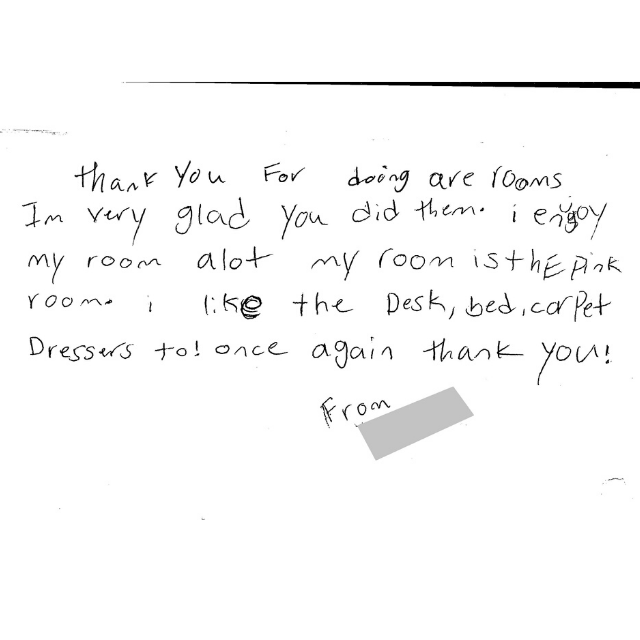 thank You For doing are rooms
Im very glad you did them. i enjoy
my room alot my room is thE pink
room. i like the Desk, bed, carpet
Dressers to! once again thank you!
From